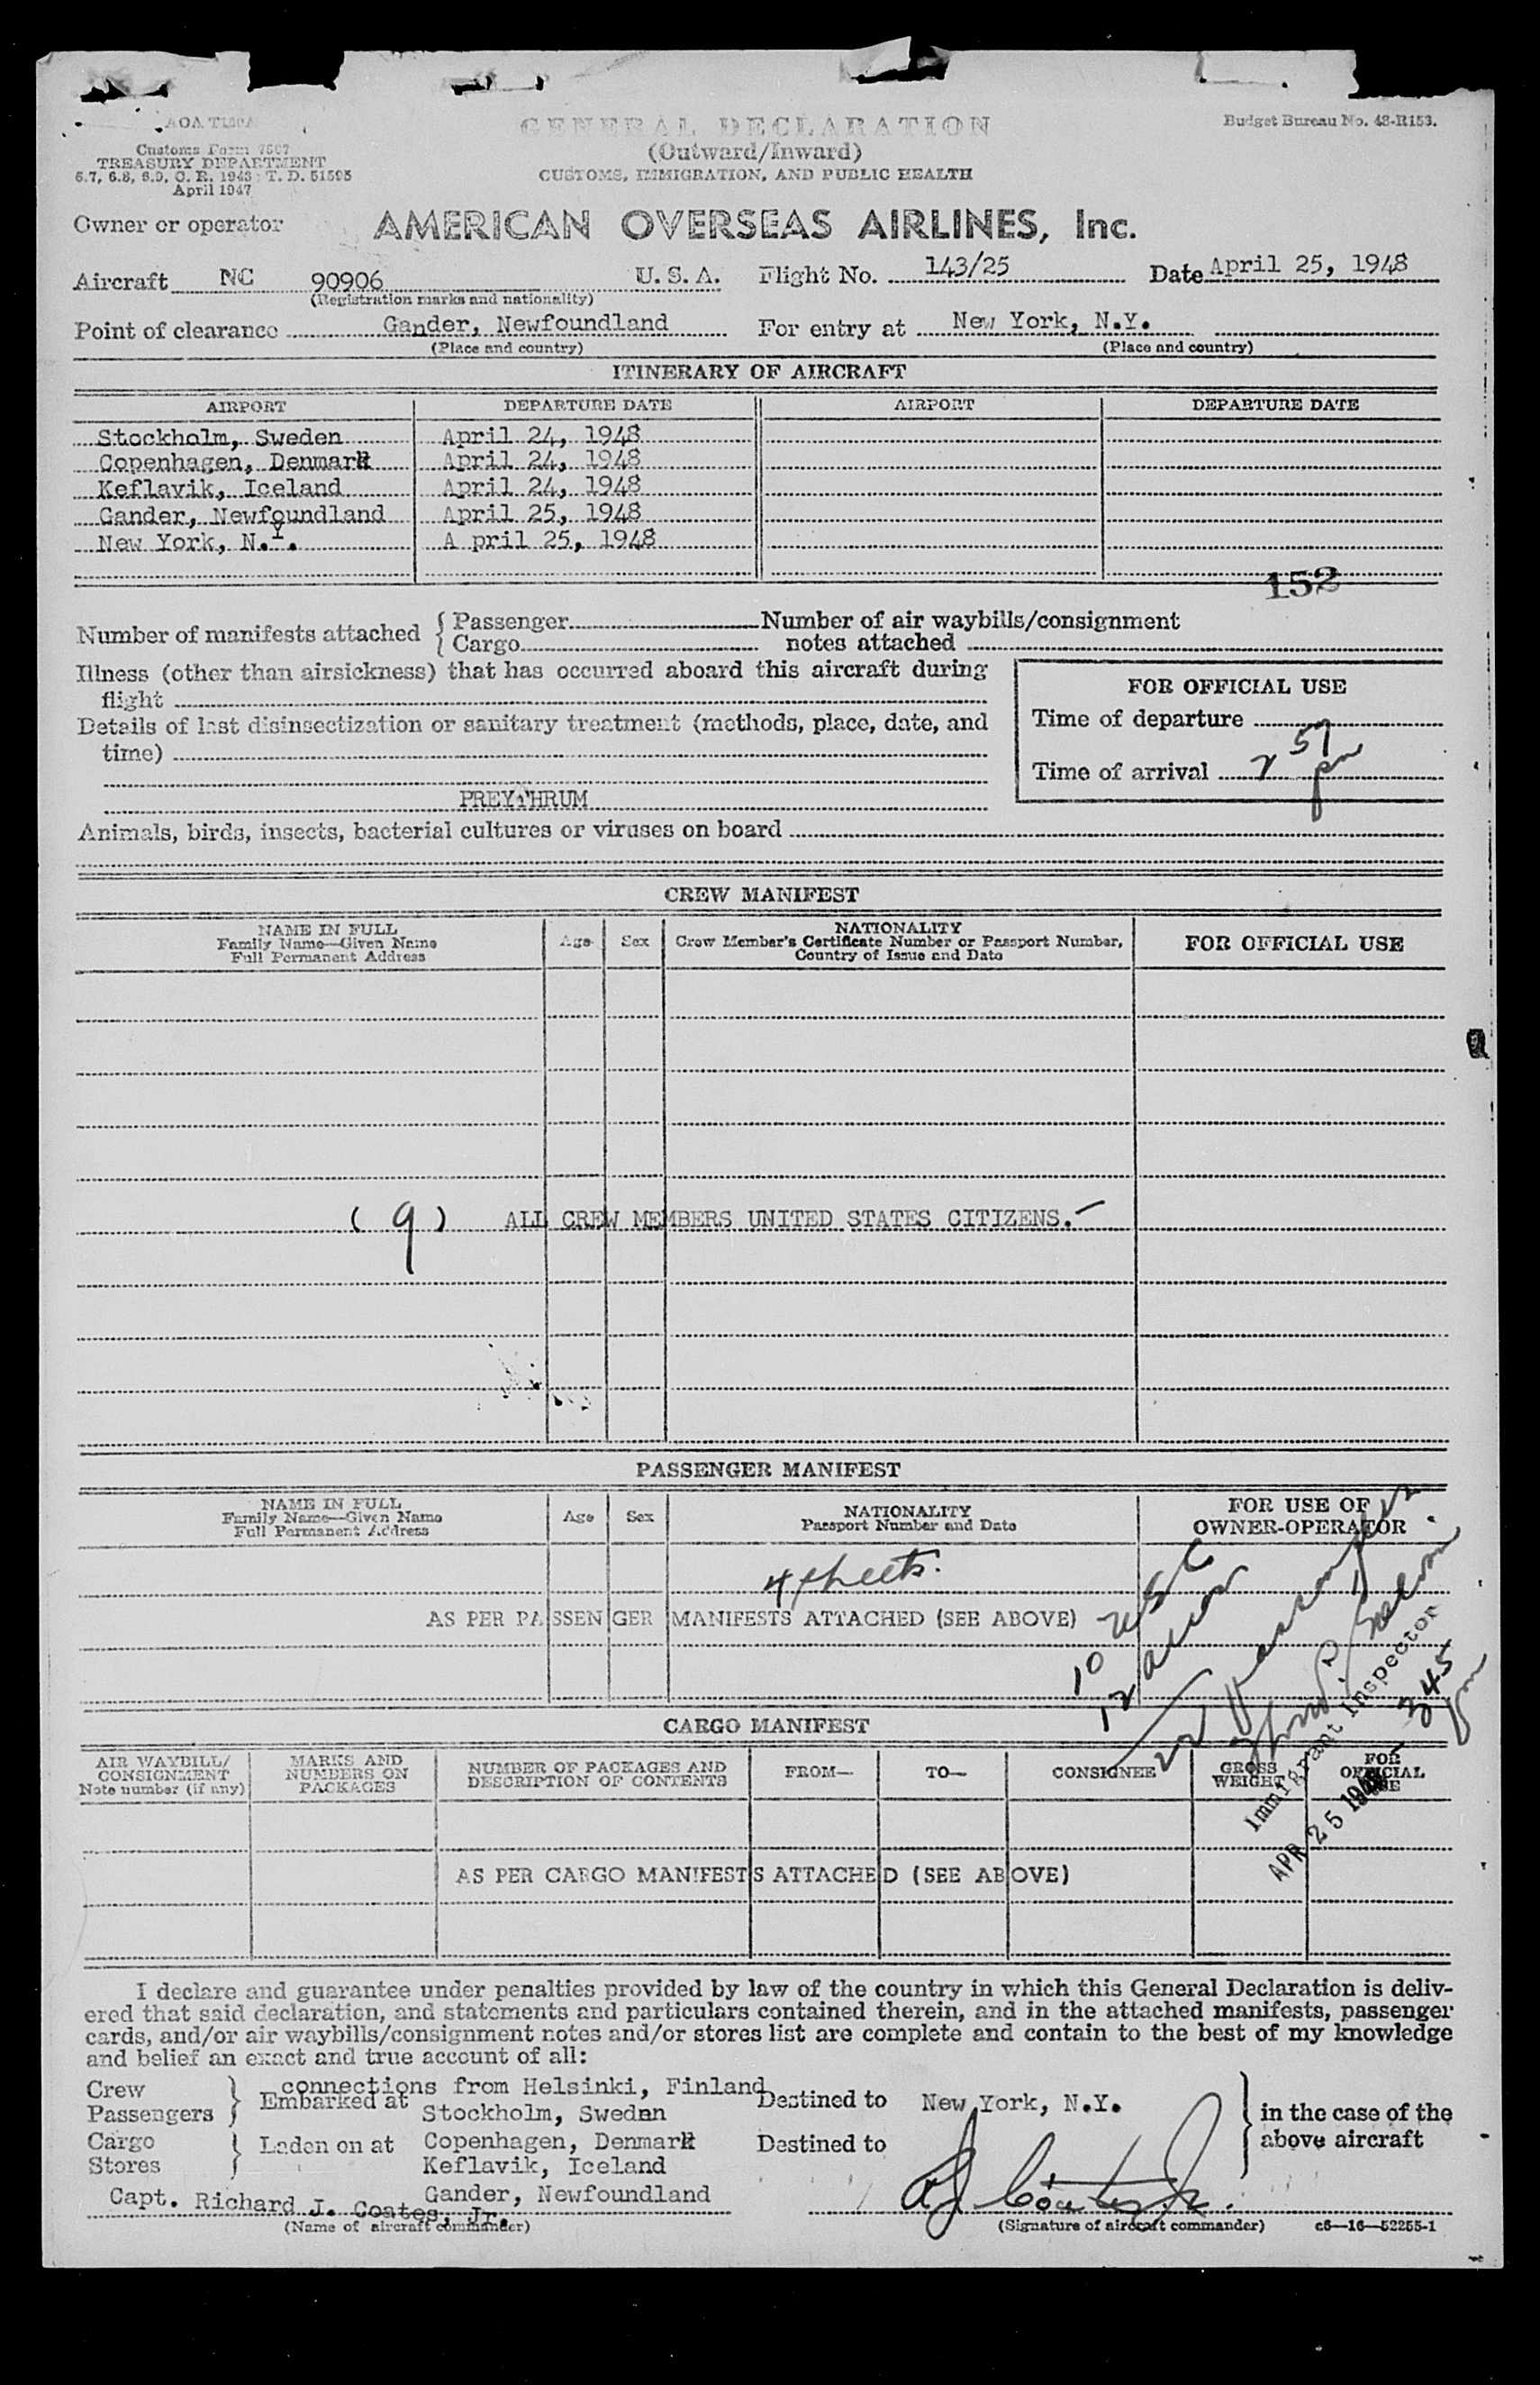 AOA
GENERAL DECLARATION
(Outward/Inward)
CUSTOMS, IMMIGRATION, AND PUBLIC HEALTH
Budget Bureau No. 48-R153.
Customs Form 7507
TREASURY DEPARTMENT
6.7, 6.8, 6.9, C. R. 1943; T. D. 51595
April 1947
Owner or operator AMERICAN OVERSEAS AIRLINES, Inc.
Aircraft NC 90906 U. S. A. Flight No. 143/25 Date April 25, 1948
(Registration marks and nationality)
Point of clearance Gander, Newfoundland For entry at New York, N.Y.
(Place and country) (Place and country)
ITINERARY OF AIRCRAFT
AIRPORT DEPARTURE DATE AIRPORT DEPARTURE DATE
Stockholm, Sweden April 24, 1948
Copenhagen, Denmark April 24, 1948
Keflavik, Iceland April 24, 1948
Gander, Newfoundland April 25, 1948
New York, N.Y. A pril 25, 1948
152
Number of manifests attached { Passenger Number of air waybills/consignment
Cargo notes attached
Illness (other than airsickness) that has occurred aboard this aircraft during
flight
FOR OFFICIAL USE
Time of departure
Time of arrival 2 57 pm
Details of last disinsectization or sanitary treatment (methods, place, date, and
time)
PREYTHRUM
Animals, birds, insects, bacterial cultures or viruses on board
CREW MANIFEST
NAME IN FULL
Family Name—Given Name
Full Permanent Address
Age Sex
NATIONALITY
Crew Member's Certificate Number or Passport Number,
Country of Issue and Date
FOR OFFICIAL USE
( 9 ) ALL CREW MEMBERS UNITED STATES CITIZENS.-
PASSENGER MANIFEST
NAME IN FULL
Family Name—Given Name
Full Permanent Address
Age Sex
NATIONALITY
Passport Number and Date
FOR USE OF
OWNER-OPERATOR
4 sheets.
AS PER PASSENGER MANIFESTS ATTACHED (SEE ABOVE)
10 USC
12 aliens
22 passengers
Immigrant Inspector
345 pm
APR 25 1948
CARGO MANIFEST
AIR WAYBILL/
CONSIGNMENT
Note number (if any)
MARKS AND
NUMBERS ON
PACKAGES
NUMBER OF PACKAGES AND
DESCRIPTION OF CONTENTS
FROM— TO— CONSIGNEE
GROSS
WEIGHT
FOR
OFFICIAL
USE
AS PER CARGO MANIFESTS ATTACHED (SEE ABOVE)
I declare and guarantee under penalties provided by law of the country in which this General Declaration is deliv-
ered that said declaration, and statements and particulars contained therein, and in the attached manifests, passenger
cards, and/or air waybills/consignment notes and/or stores list are complete and contain to the best of my knowledge
and belief an exact and true account of all:
connections from Helsinki, Finland
Crew
Passengers } Embarked at Stockholm, Sweden Destined to New York, N.Y. } in the case of the
above aircraft
Cargo
Stores } Laden on at Copenhagen, Denmark Destined to
Keflavik, Iceland
Gander, Newfoundland
Capt. Richard J. Coates, Jr. RJ Coates Jr.
(Name of aircraft commander) (Signature of aircraft commander) c6—16—52255-1